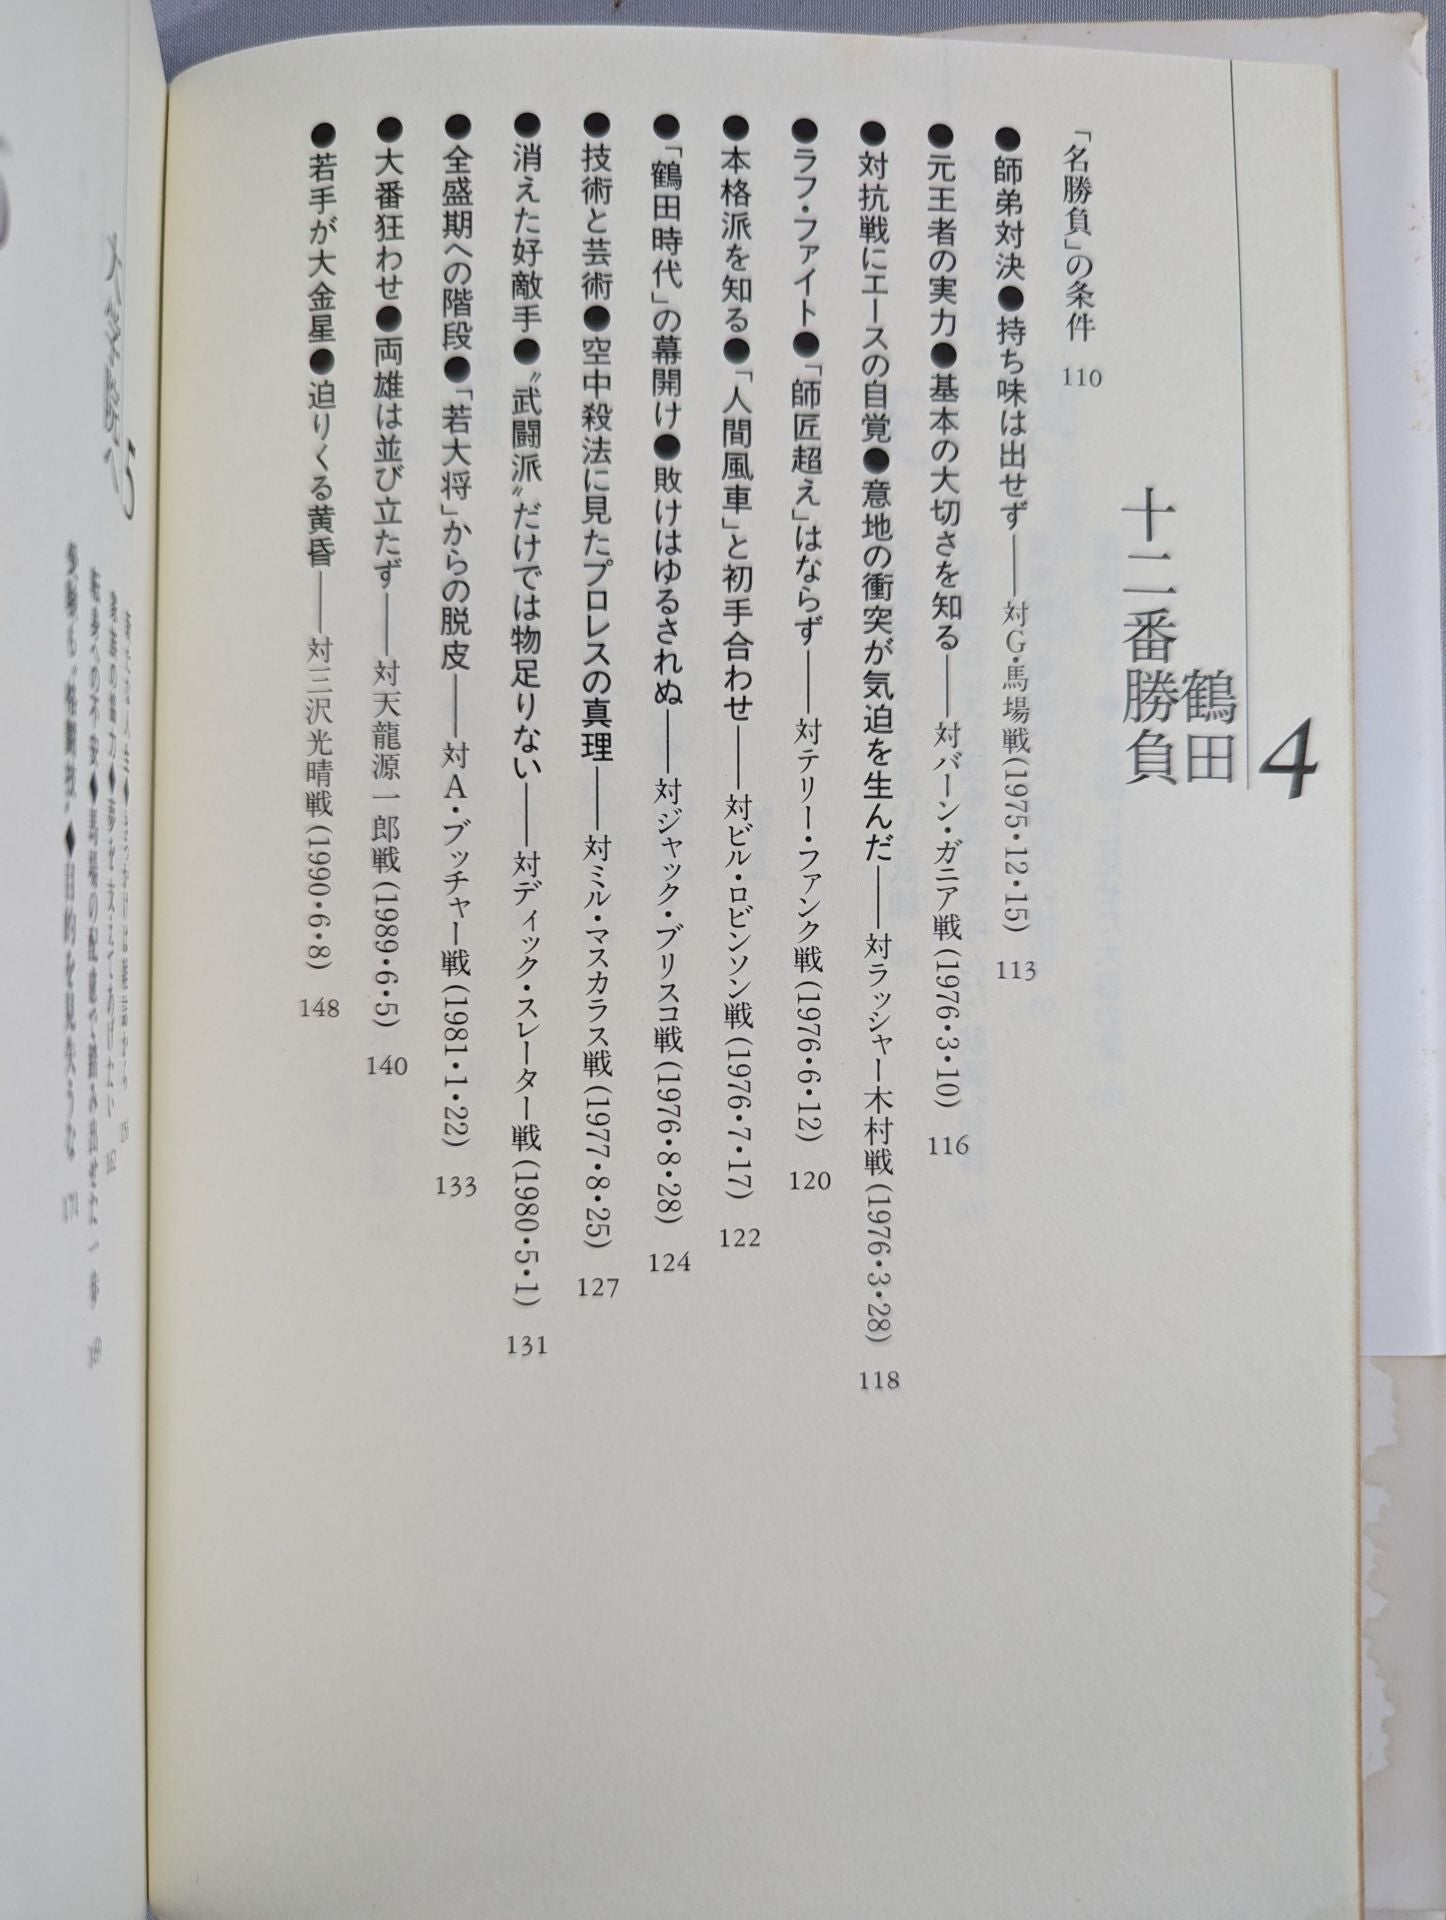 4
鶴田
十二番勝負
「名勝負」の条件 110
●師弟対決●持ち味は出せず――対G・馬場戦(1975・12・15) 113
●元王者の実力●基本の大切さを知る――対バーン・ガニア戦(1976・3・10) 116
●対抗戦にエースの自覚●意地の衝突が気迫を生んだ――対ラッシャー木村戦(1976・3・28) 118
●ラフ・ファイト●「師匠超え」はならず――対テリー・ファンク戦(1976・6・12) 120
●本格派を知る●「人間風車」と初手合わせ――対ビル・ロビンソン戦(1976・7・17) 122
●「鶴田時代」の幕開け●敗けはゆるされぬ――対ジャック・ブリスコ戦(1976・8・28) 124
●技術と芸術●空中殺法に見たプロレスの真理――対ミル・マスカラス戦(1977・8・25) 127
●消えた好敵手●〝武闘派〟だけでは物足りない――対ディック・スレーター戦(1980・5・1) 131
●全盛期への階段●「若大将」からの脱皮――対A・ブッチャー戦(1981・1・22) 133
●大番狂わせ●両雄は並び立たず――対天龍源一郎戦(1989・6・5) 140
●若手が大金星●迫りくる黄昏――対三沢光晴戦(1990・6・8) 148
5
大学院へ